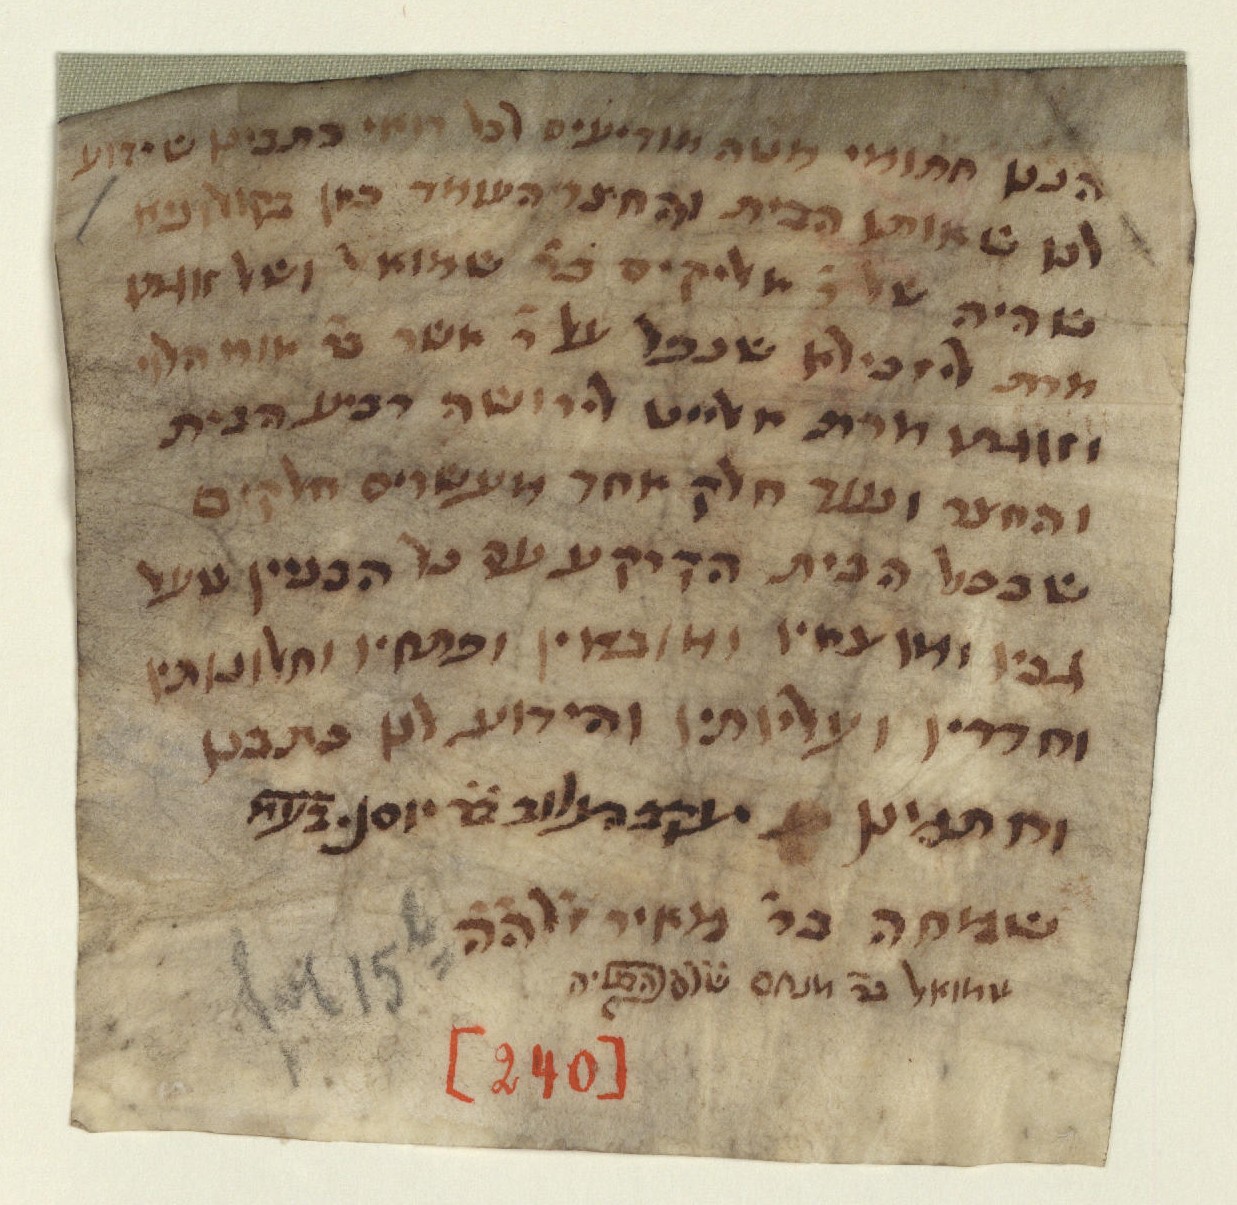 הננו חתומי מטה מודיעים לכל רואי כתבינו שידוע
לנו שאותו הבית והחצר העומד כאן בקולוניא
שהיה של ר' אליקים בר' שמואל ושל זוגתו
מרת שנפל על ר' אשר בר' אורי הלוי
וזוגתו מרת לירושה רביע הבית
והחצר ועוד חלק אחד מעשרים חלקים
שבכל הבית הקרקע עם כל הבנין שעל
גביו ומוצאיו ומובאיו ופתחיו וחלונותיו
וחדריו ועליותיו והידוע לנו כתבנו
וחתמנו יעקב בר' יוסף
שמחה בר' מאיר זלה"ה
שמואל בר' מנחם
fol 15
[240]